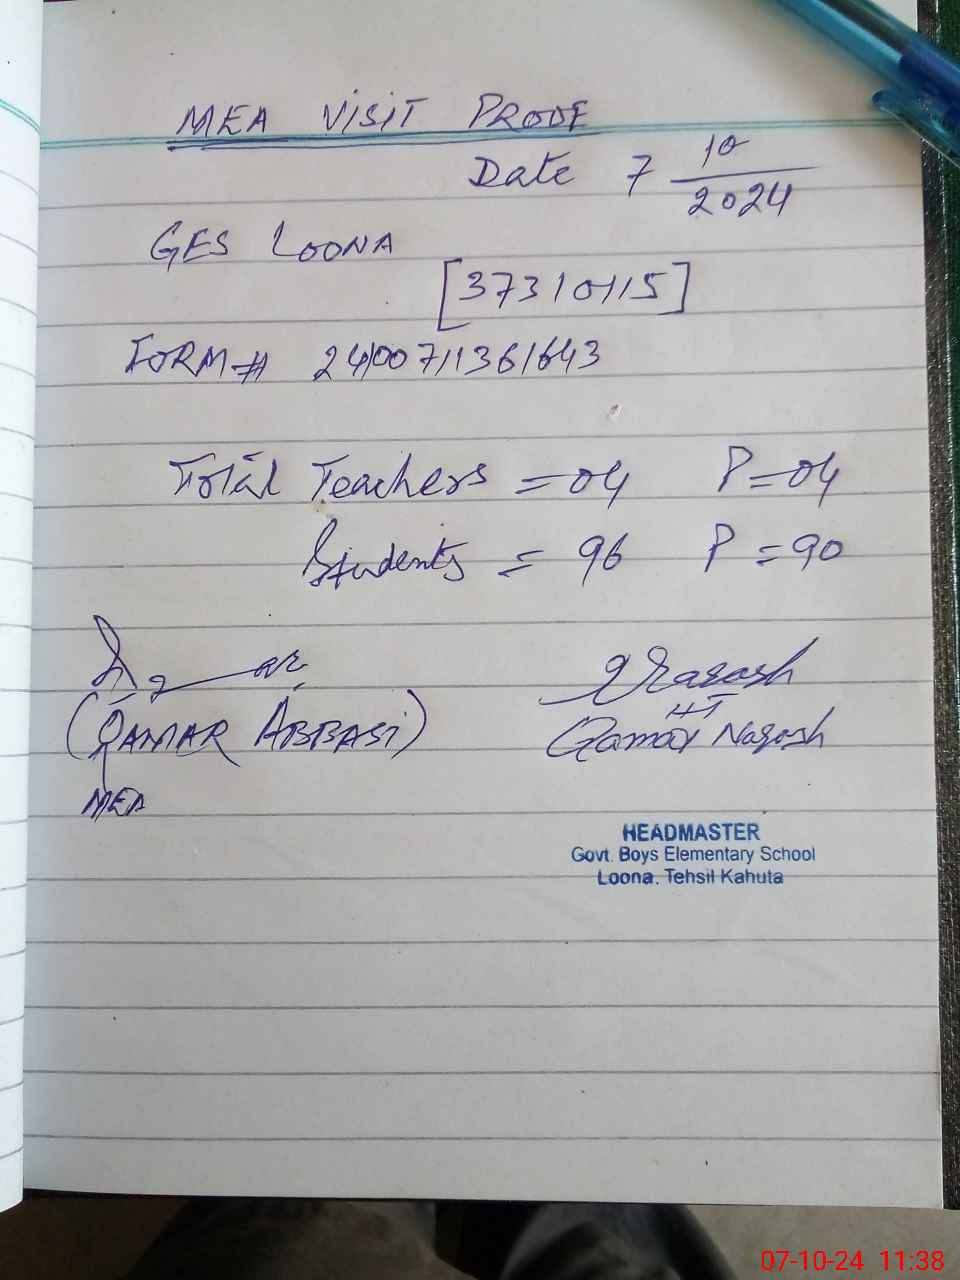 MEA VISIT PROOF
Date 7 10/2024
GES LOONA
[37310115]
FORM # 2410071136/643
Total Teachers = 04 P = 04
Students = 96 P = 90
(QAMAR ABBASI)
Qamar Naqash
MEA
HEADMASTER
Govt. Boys Elementary School
Loona. Tehsil Kahuta
07-10-24 11:38